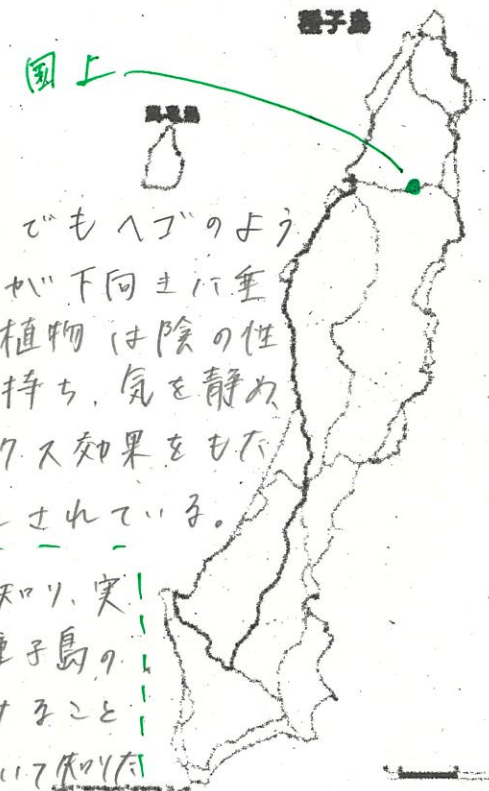 種子島
国上
馬毛島
でもヘゴのよう
が下向きに垂
植物は陰の性
持ち、気を静め
クス効果をもた
とされている。
知り、実
種子島の
すること
いて知りた